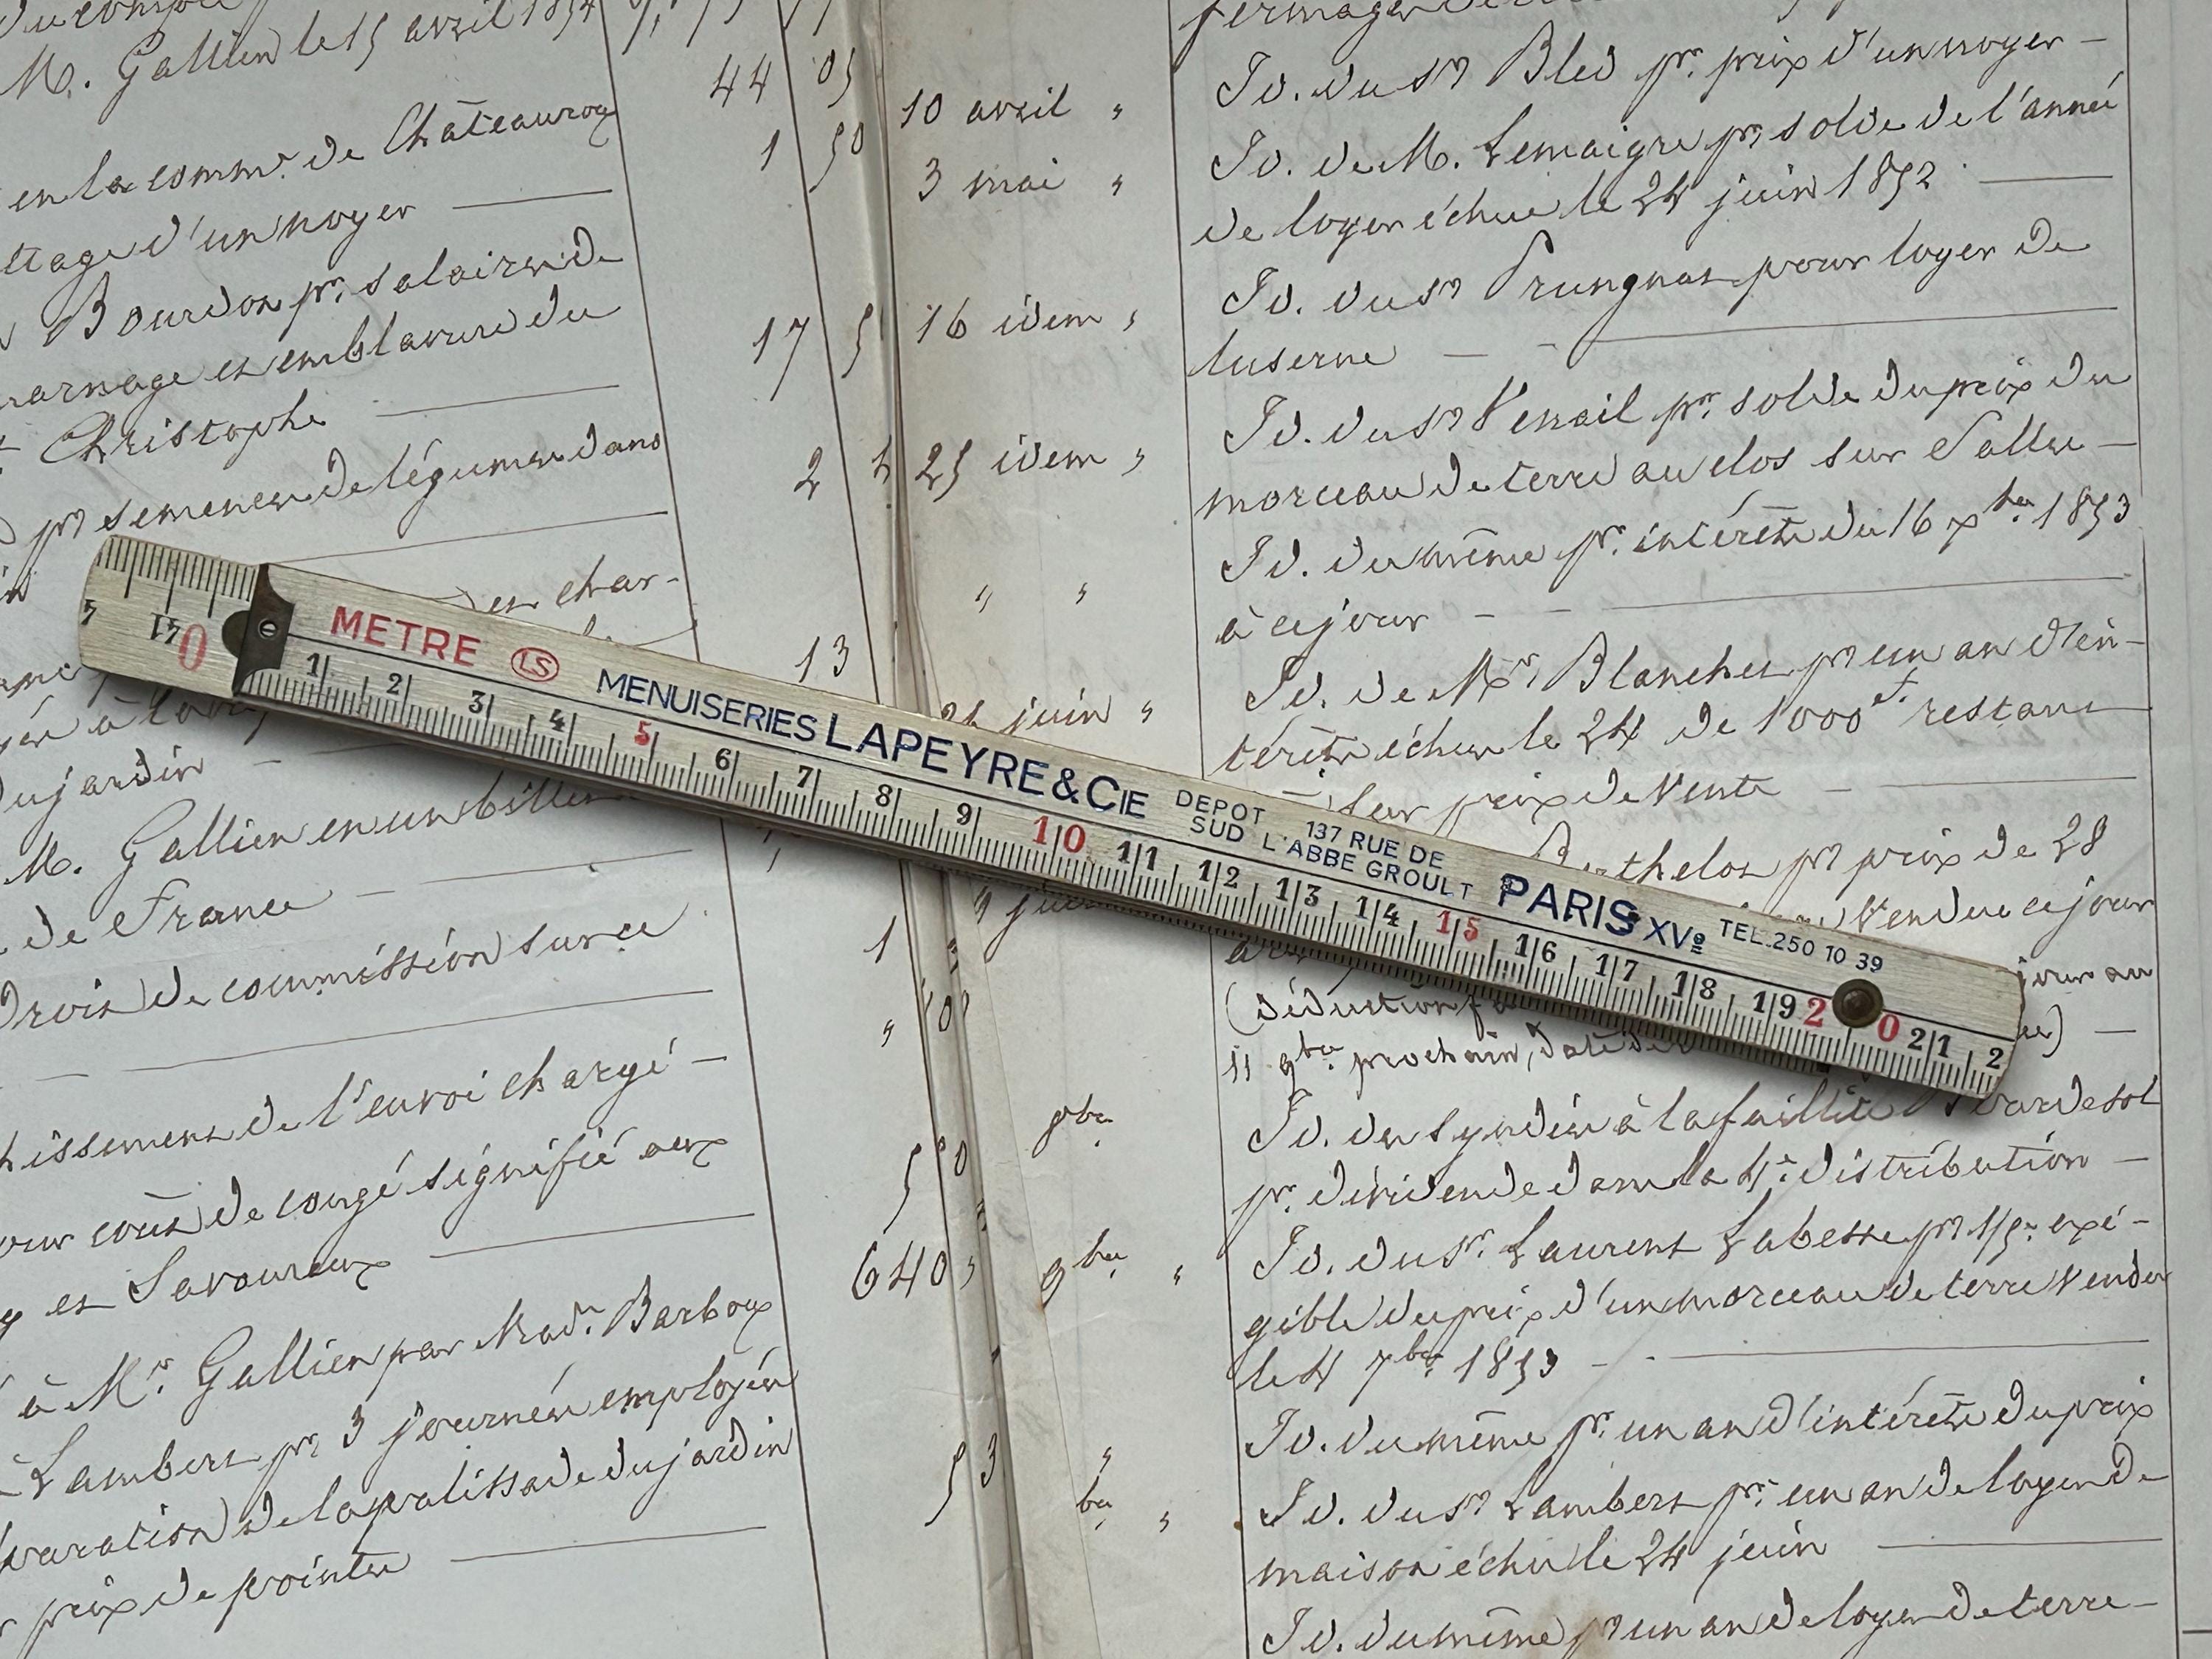 M. Gallien le 15 avril 1854
en la comm.e de Châteauroux 44 05
ttage d'un noyer 1 50
Bourdon pr. salaire de
marnage et emblavure du 17 5
Christophe
pr semences de légumes dans 2
et char-
13
du jardin
M. Gallien en un billet
de France
Droit de commission sur ce 1 "
" 40
hissement de l'envoi chargé
our coût de congé signifié aux 5 50
y et Savoureux
à Mr. Gallien par Mad.e Barboux 640 "
Lambert pr 3 journées employées
paration de la palissade du jardin 53
prix de pointes
10 avril "
3 mai "
16 idem "
25 idem "
" "
juin "
8bre
9bre "
"
bre "
Id. du sr Bled pr. prix d'un noyer —
Id. de M. Lemaigre pr solde de l'année
de loyer échue le 24 juin 1852
Id. du sr Prungnas pour loyer de
luserne
Id. du sr Venail pr. solde du prix du
morceau de terre au clos sur Vallée —
Id. du même pr. intérêts du 16 xbre 1853
à ce jour
Id. de Mr. Blanchet pr un an d'in-
térêts échus le 24 de 1000 f. restant
sur prix de vente
Berthelot pr prix de 28
vendue ce jour
(déduction
11 9bre prochain, date de
Id. du syndic à la faillite
pr. dividende dans la 4e distribution —
Id. du sr. Laurent Labesse pr 1/5e exi-
gible du prix d'un morceau de terre vendu
le 4 7bre 1853
Id. du même pr. un an d'intérêts du prix
Id. du sr Lambert pr. un an de loyer de
maison échu le 24 juin
Id. du même pr un an de loyer de terre —
4 41 0
METRE LS MENUISERIES LAPEYRE & CIE DEPOT SUD 137 RUE DE L'ABBE GROULT PARIS XVe TEL. 250 10 39
1 2 3 4 5 6 7 8 9 10 11 12 13 14 15 16 17 18 19 20 21 2